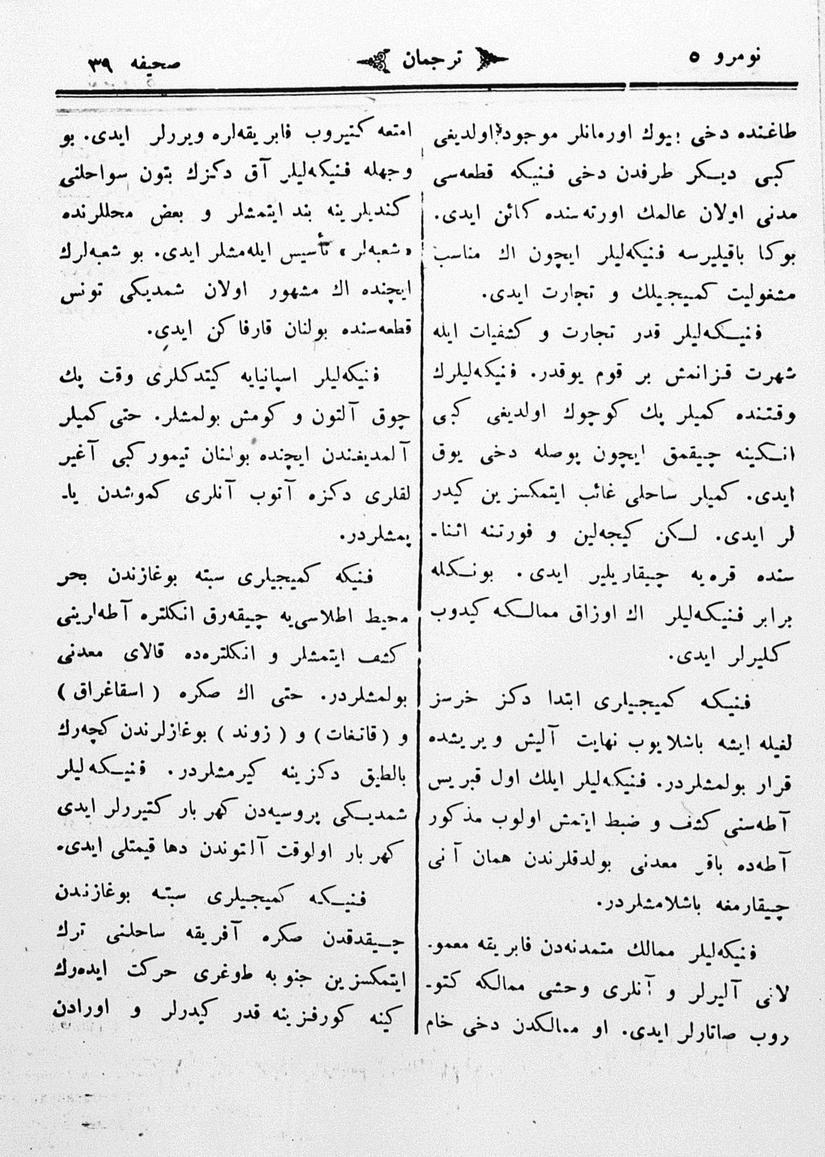 نومرو ٥
ترجمان
صحیفه ٣٩
طاغنده دخی بیوك اورمانلر موجود اولدیغی
كبی دیكر طرفدن دخی فنیكه قطعه‌سی
مدنی اولان عالمك اورته‌سنده كائن ایدی.
بوكا باقیلیرسه فنیكه‌لیلر ایچون اك مناسب
مشغولیت كمیجیلك و تجارت ایدی.
فنیكه‌لیلر قدر تجارت و كشفیات ایله
شهرت قزانمش بر قوم یوقدر. فنیكه‌لیلرك
وقتنده كمیلر پك كوچوك اولدیغی كبی
انكینه چیقمق ایچون پوصله دخی یوق
ایدی. كمیلر ساحلی غائب ایتمكسزین كیدر
لر ایدی. لكن كیجه‌لین و فورتنه اثنا-
سنده قره‌یه چیقاریلیر ایدی. بونكله
برابر فنیكه‌لیلر اك اوزاق ممالكه كیدوب
كلیرلر ایدی.
فنیكه كمیجیلری ابتدا دكز خرسز
لغیله ایشه باشلایوب نهایت آلیش ویریشده
قرار بولمشلردر. فنیكه‌لیلر ایلك اول قبریس
آطه‌سنی كشف و ضبط ایتمش اولوب مذكور
آطه‌ده باقر معدنی بولدقلرندن همان آنی
چیقارمغه باشلامشلردر.
فنیكه‌لیلر ممالك متمدنه‌دن فابریقه معمو-
لانی آلیرلر و آنلری وحشی ممالكه كتو-
روب صاتارلر ایدی. او ممالكدن دخی خام
امتعه كتیروب فابریقه‌لره ویررلر ایدی. بو
وجهله فنیكه‌لیلر آق دكزك بتون سواحلنی
كندیلرینه بند ایتمشلر و بعض محللرنده
«شعبه‌لر» تأسیس ایله‌مشلر ایدی. بو شعبه‌لرك
ایچنده اك مشهور اولان شمدیكی تونس
قطعه‌سنده بولنان قارفاكن ایدی.
فنیكه‌لیلر اسپانیایه كیتدكلری وقت پك
چوق آلتون و كومش بولمشلر. حتی كمیلر
آلمدیغندن ایچنده بولنان تیمور كبی آغیر
لقلری دكزه آتوب آنلری كموشدن یا-
پمشلردر.
فنیكه كمیجیلری سبته بوغازندن بحر
محیط اطلاسی‌یه چیقه‌رق انكلتره آطه‌لرینی
كشف ایتمشلر و انكلتره‌ده قالای معدنی
بولمشلردر. حتی اك صكره (اسقاغراق)
و (قانغات) و (زوند) بوغازلرندن كچه‌رك
بالطیق دكزینه كیرمشلردر. فنیكه‌لیلر
شمدیكی پروسیه‌دن كهربار كتیررلر ایدی
كهربار اولوقت آلتوندن دها قیمتلی ایدی.
فنیكه كمیجیلری سبته بوغازندن
چیقدقدن صكره آفریقه ساحلنی ترك
ایتمكسزین جنوبه طوغری حركت ایده‌رك
كینه كورفزینه قدر كیدرلر و اورادن